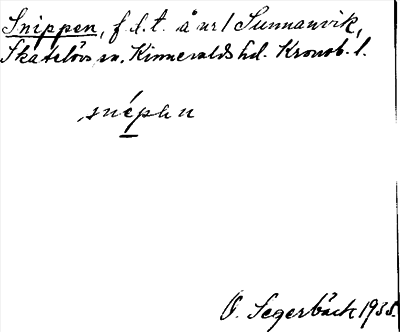 Snippen, f. l. t. å nr 1 Sunnanvik,
Skatelövs sn. Kinnevalds hd. Kronob. l.
O. Segerbäck 1935.